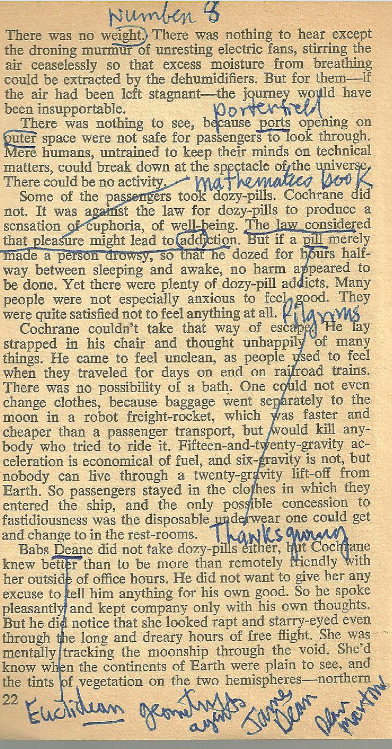 Number 8
There was no weight. There was nothing to hear except
the droning murmur of unresting electric fans, stirring the
air ceaselessly so that excess moisture from breathing
could be extracted by the dehumidifiers. But for them—if
the air had been left stagnant—the journey would have
been insupportable.
porterfield
There was nothing to see, because ports opening on
outer space were not safe for passengers to look through.
Mere humans, untrained to keep their minds on technical
matters, could break down at the spectacle of the universe.
There could be no activity.
mathematics book
Some of the passengers took dozy-pills. Cochrane did
not. It was against the law for dozy-pills to produce a
sensation of euphoria, of well-being. The law considered
that pleasure might lead to addiction. But if a pill merely
made a person drowsy, so that he dozed for hours half-
way between sleeping and awake, no harm appeared to
be done. Yet there were plenty of dozy-pill addicts. Many
people were not especially anxious to feel good. They
were quite satisfied not to feel anything at all.
Pilgrims
Cochrane couldn't take that way of escape. He lay
strapped in his chair and thought unhappily of many
things. He came to feel unclean, as people used to feel
when they traveled for days on end on railroad trains.
There was no possibility of a bath. One could not even
change clothes, because baggage went separately to the
moon in a robot freight-rocket, which was faster and
cheaper than a passenger transport, but would kill any-
body who tried to ride it. Fifteen-and-twenty-gravity ac-
celeration is economical of fuel, and six-gravity is not, but
nobody can live through a twenty-gravity lift-off from
Earth. So passengers stayed in the clothes in which they
entered the ship, and the only possible concession to
fastidiousness was the disposable underwear one could get
and change to in the rest-rooms.
Thanksgiving
Babs Deane did not take dozy-pills either, but Cochrane
knew better than to be more than remotely friendly with
her outside of office hours. He did not want to give her any
excuse to tell him anything for his own good. So he spoke
pleasantly and kept company only with his own thoughts.
But he did notice that she looked rapt and starry-eyed even
through the long and dreary hours of free flight. She was
mentally tracking the moonship through the void. She'd
know when the continents of Earth were plain to see, and
the tints of vegetation on the two hemispheres—northern
22
Euclidean geometry
James
Dean